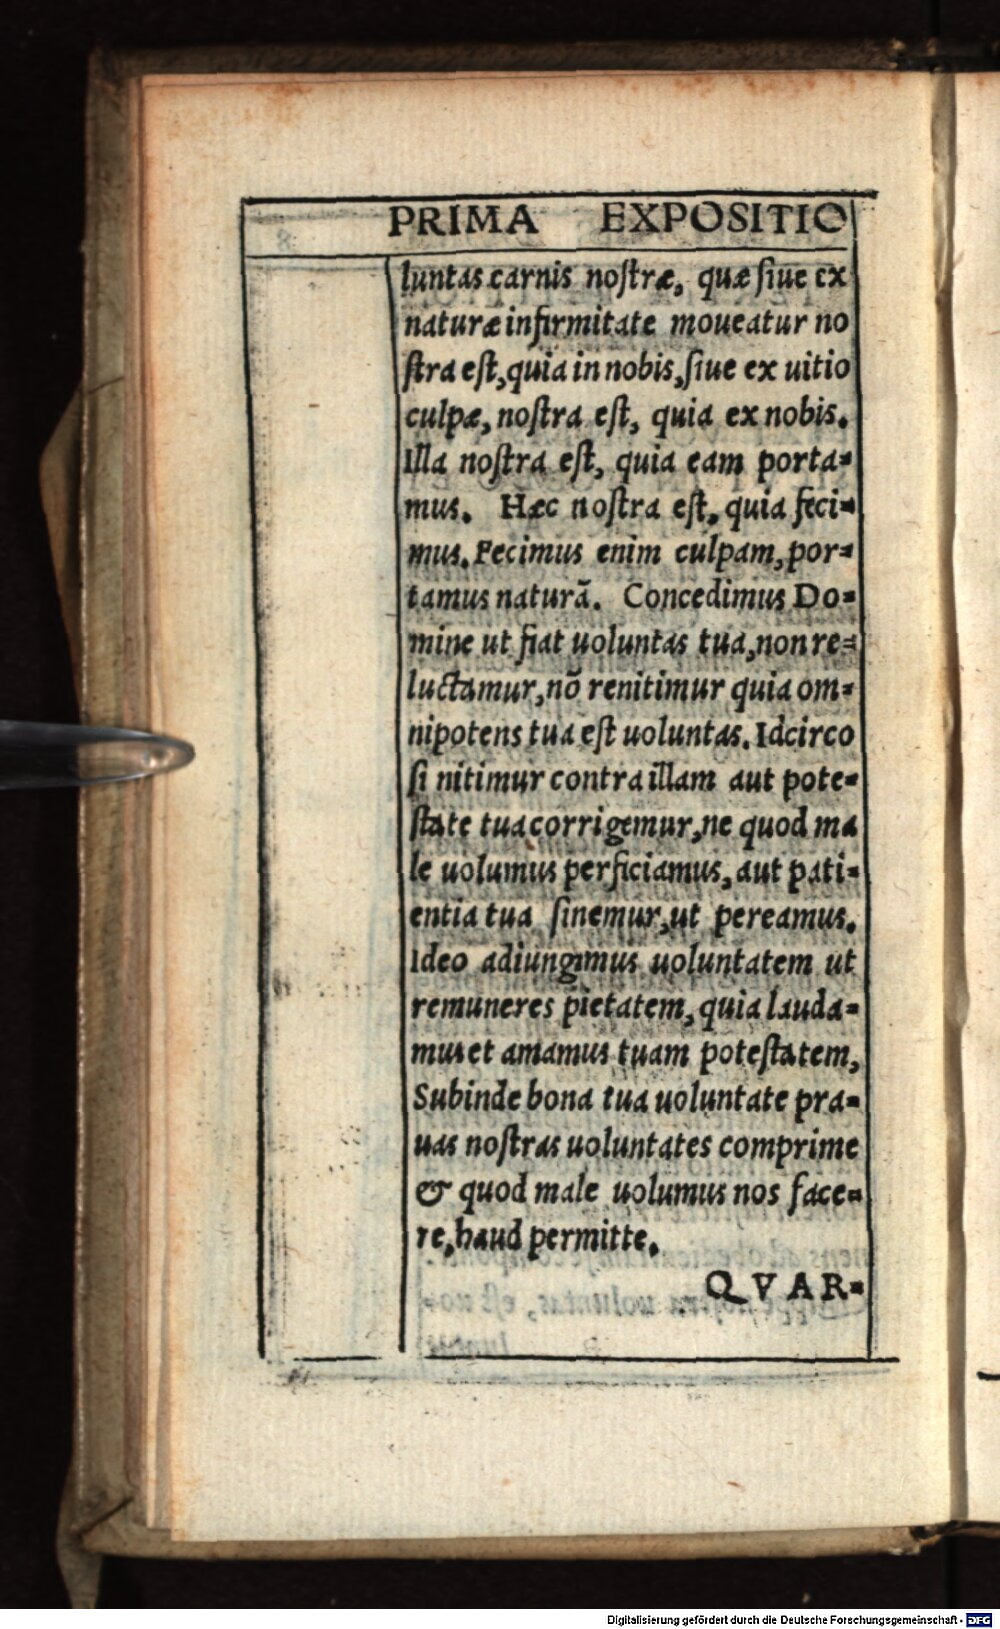 PRIMA EXPOSITIO
luntas carnis noſtræ, quæ ſiue ex
naturæ infirmitate moueatur no
ſtra eſt, quia in nobis, ſiue ex uitio
culpæ, noſtra eſt, quia ex nobis.
Illa noſtra eſt, quia eam porta-
mus. Hæc noſtra eſt, quia feci-
mus. Fecimus enim culpam, por-
tamus naturã. Concedimus Do-
mine ut fiat uoluntas tua, non re-
luctamur, nõ renitimur quia om-
nipotens tua eſt uoluntas. Idcirco
ſi nitimur contra illam aut pote-
ſtate tua corrigemur, ne quod ma
le uolumus perficiamus, aut pati-
entia tua ſinemur, ut pereamus.
Ideo adiungimus uoluntatem ut
remuneres pietatem, quia lauda-
mus et amamus tuam poteſtatem,
Subinde bona tua uoluntate pra-
uas noſtras uoluntates comprime
& quod male uolumus nos face-
re, haud permitte.
QVAR-
Digitalisierung gefördert durch die Deutsche Forschungsgemeinschaft - DFG